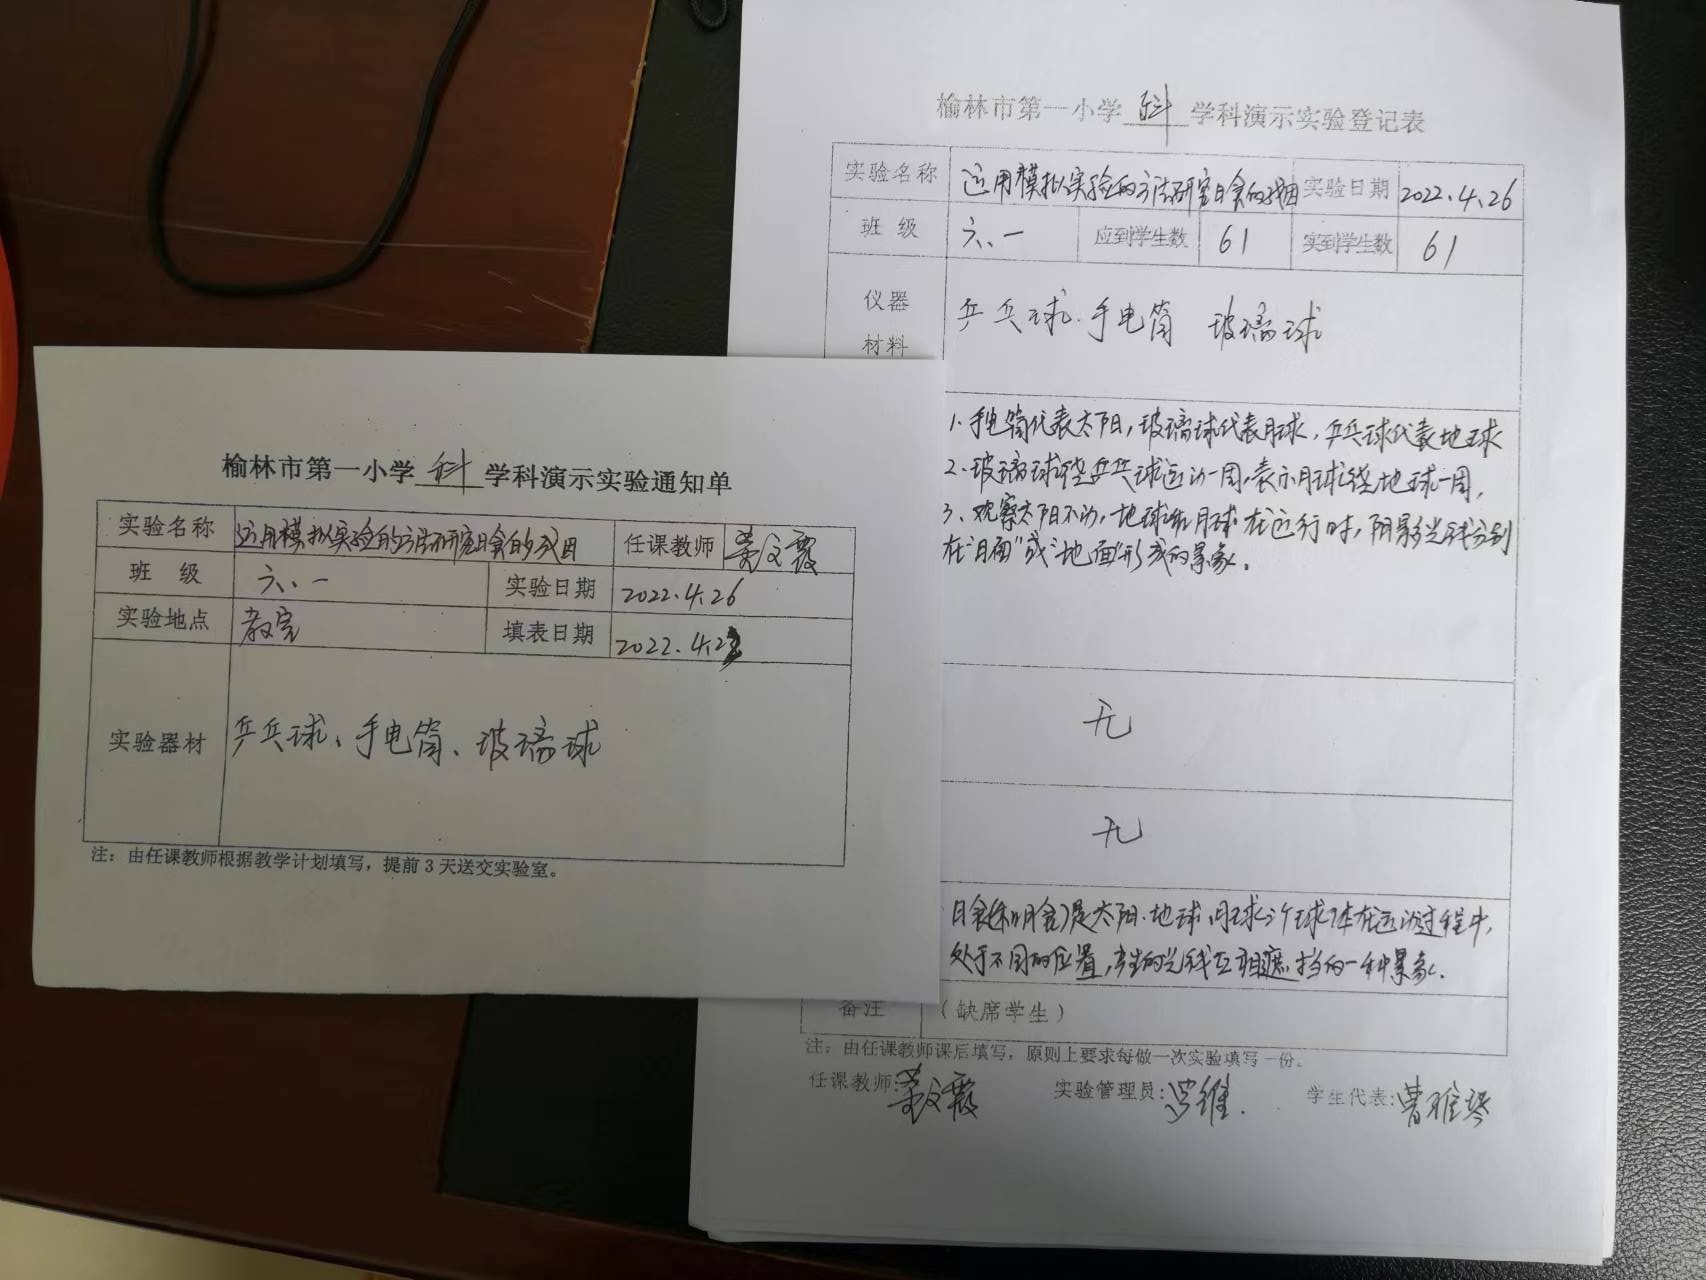 榆林市第一小学 科 学科演示实验通知单
实验名称 运用模拟实验的方法研究日食的成因 任课教师 文霞
班 级 六、一 实验日期 2022.4.26
实验地点 教室 填表日期 2022.4.23
实验器材 乒乓球、手电筒、玻璃球
注：由任课教师根据教学计划填写，提前3天送交实验室。
榆林市第一小学 科 学科演示实验登记表
实验名称 运用模拟实验的方法研究日食的成因 实验日期 2022.4.26
班 级 六、一 应到学生数 61 实到学生数 61
仪器
材料
乒乓球.手电筒 玻璃球
1.手电筒代表太阳,玻璃球代表月球,乒乓球代表地球
2.玻璃球绕乒乓球运动一周,表示月球绕地球一周,
3、观察太阳不动,地球和月球在运行时,阴影光线分别
在“月面”或“地面”形成的景象。
无
无
日食(和月食)是太阳.地球.月球三个球体在运动过程中,
处于不同的位置,产生的光线互相遮挡的一种景象.
备注 （缺席学生）
注：由任课教师课后填写，原则上要求每做一次实验填写一份。
任课教师: 文霞 实验管理员: 罗维. 学生代表: 曹雅琴